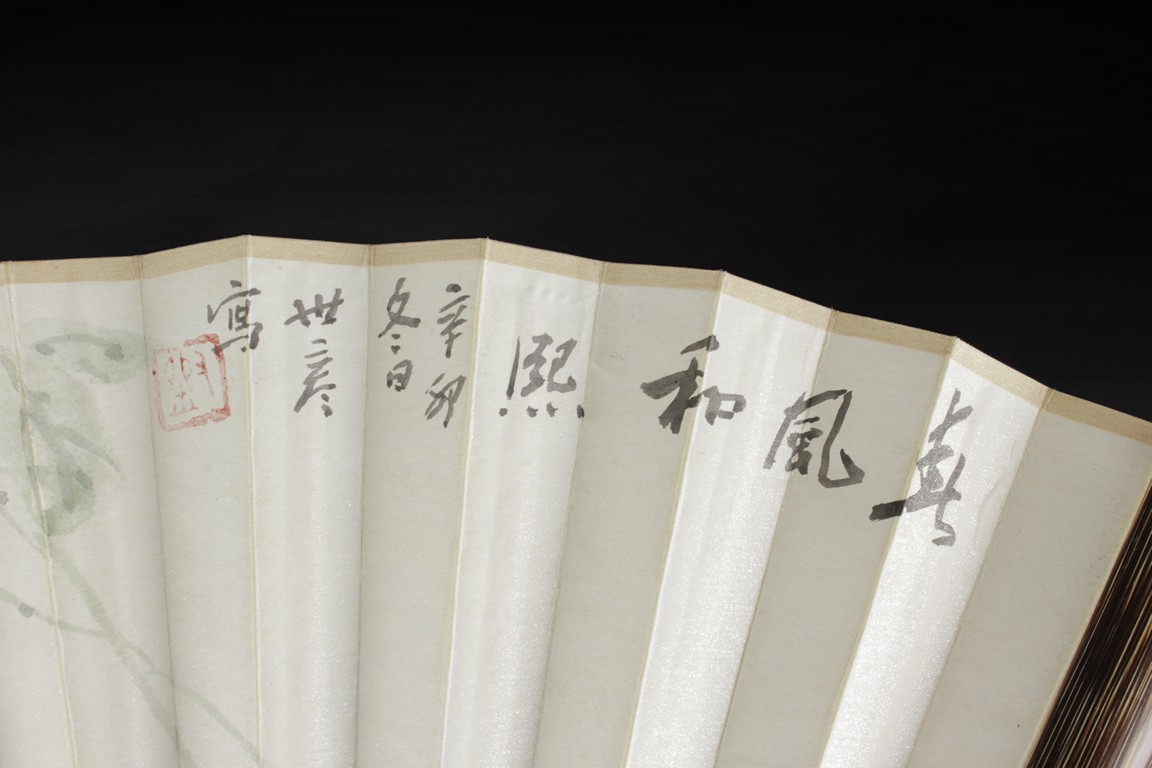 春風和熙
辛卯
冬日
世彦
寫